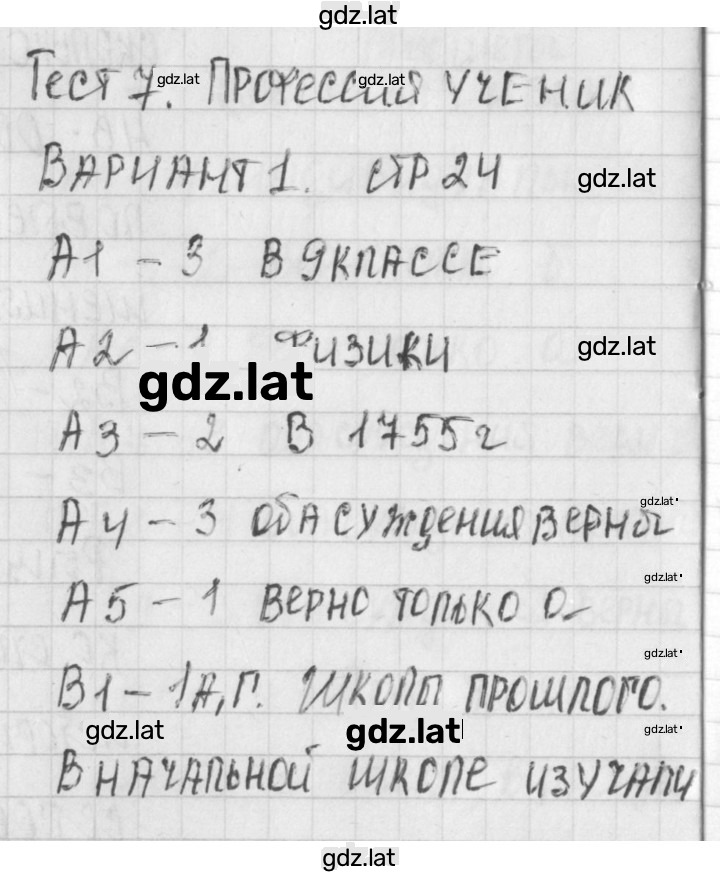 gdz.lat
Тест 7. Профессия ученик
gdz.lat gdz.lat
Вариант 1. стр 24
gdz.lat
А1 - 3 В 9 классе
А2 - 1 Физики
gdz.lat
gdz.lat
А3 - 2 В 1755г
А4 - 3 оба суждения верны
gdz.lat
А5 - 1 верно только а
gdz.lat
В1 - 1А,Г. Школы прошлого.
gdz.lat
gdz.lat gdz.lat gdz.lat
В начальной школе изучали
gdz.lat